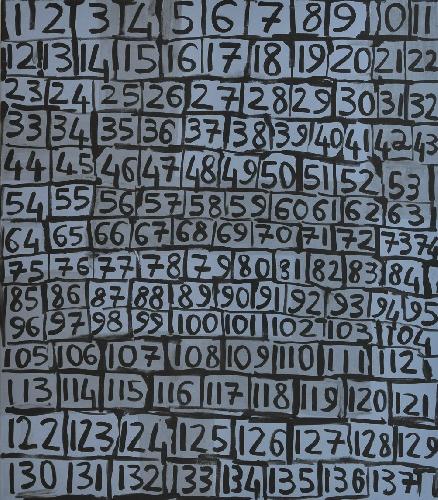 1 2 3 4 5 6 7 8 9 10 11
12 13 14 15 16 17 18 19 20 21 22
23 24 25 26 27 28 29 30 31 32
33 34 35 36 37 38 39 40 41 42 43
44 45 46 47 48 49 50 51 52 53
54 55 56 57 58 59 60 61 62 63
64 65 66 67 68 69 70 71 72 73 74
75 76 77 78 79 80 81 82 83 84
85 86 87 88 89 90 91 92 93 94 95
96 97 98 99 100 101 102 103 104
105 106 107 108 109 110 111 112
113 114 115 116 117 118 119 120 121
122 123 124 125 126 127 128 129
130 131 132 133 134 135 136 137